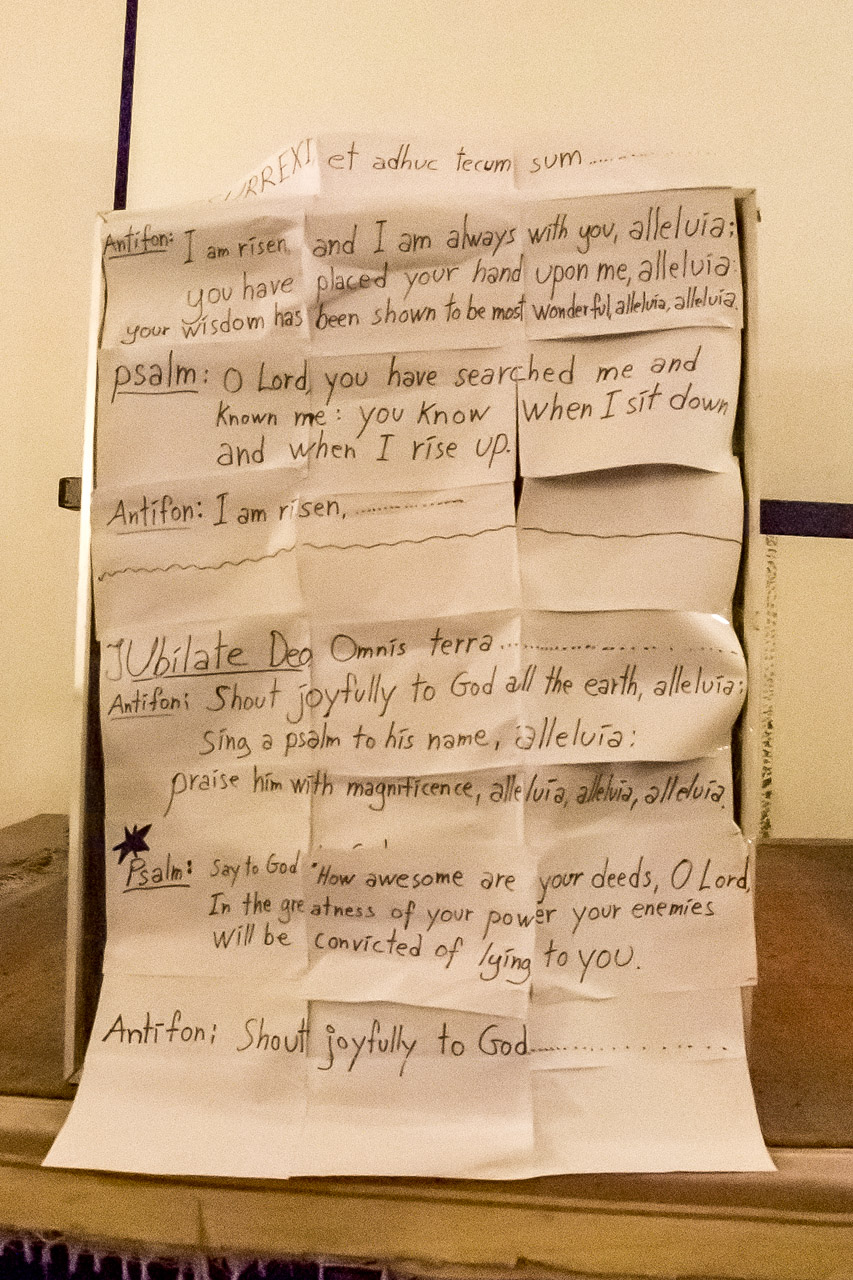 URREXI et adhuc tecum sum..............
Antifon: I am risen, and I am always with you, alleluia;
you have placed your hand upon me, alleluia:
your wisdom has been shown to be most wonderful, alleluia, alleluia.
psalm: O Lord, you have searched me and
known me: you know when I sit down
and when I rise up.
Antifon: I am risen, ..............
JUbilate Deo Omnis terra ......................
Antifon: Shout joyfully to God all the earth, alleluia:
Sing a psalm to his name, alleluia:
praise him with magnificence, alleluia, alleluia, alleluia.
Psalm: say to God "How awesome are your deeds, O Lord,
In the greatness of your power your enemies
will be convicted of lying to you.
Antifon: Shout joyfully to God....................